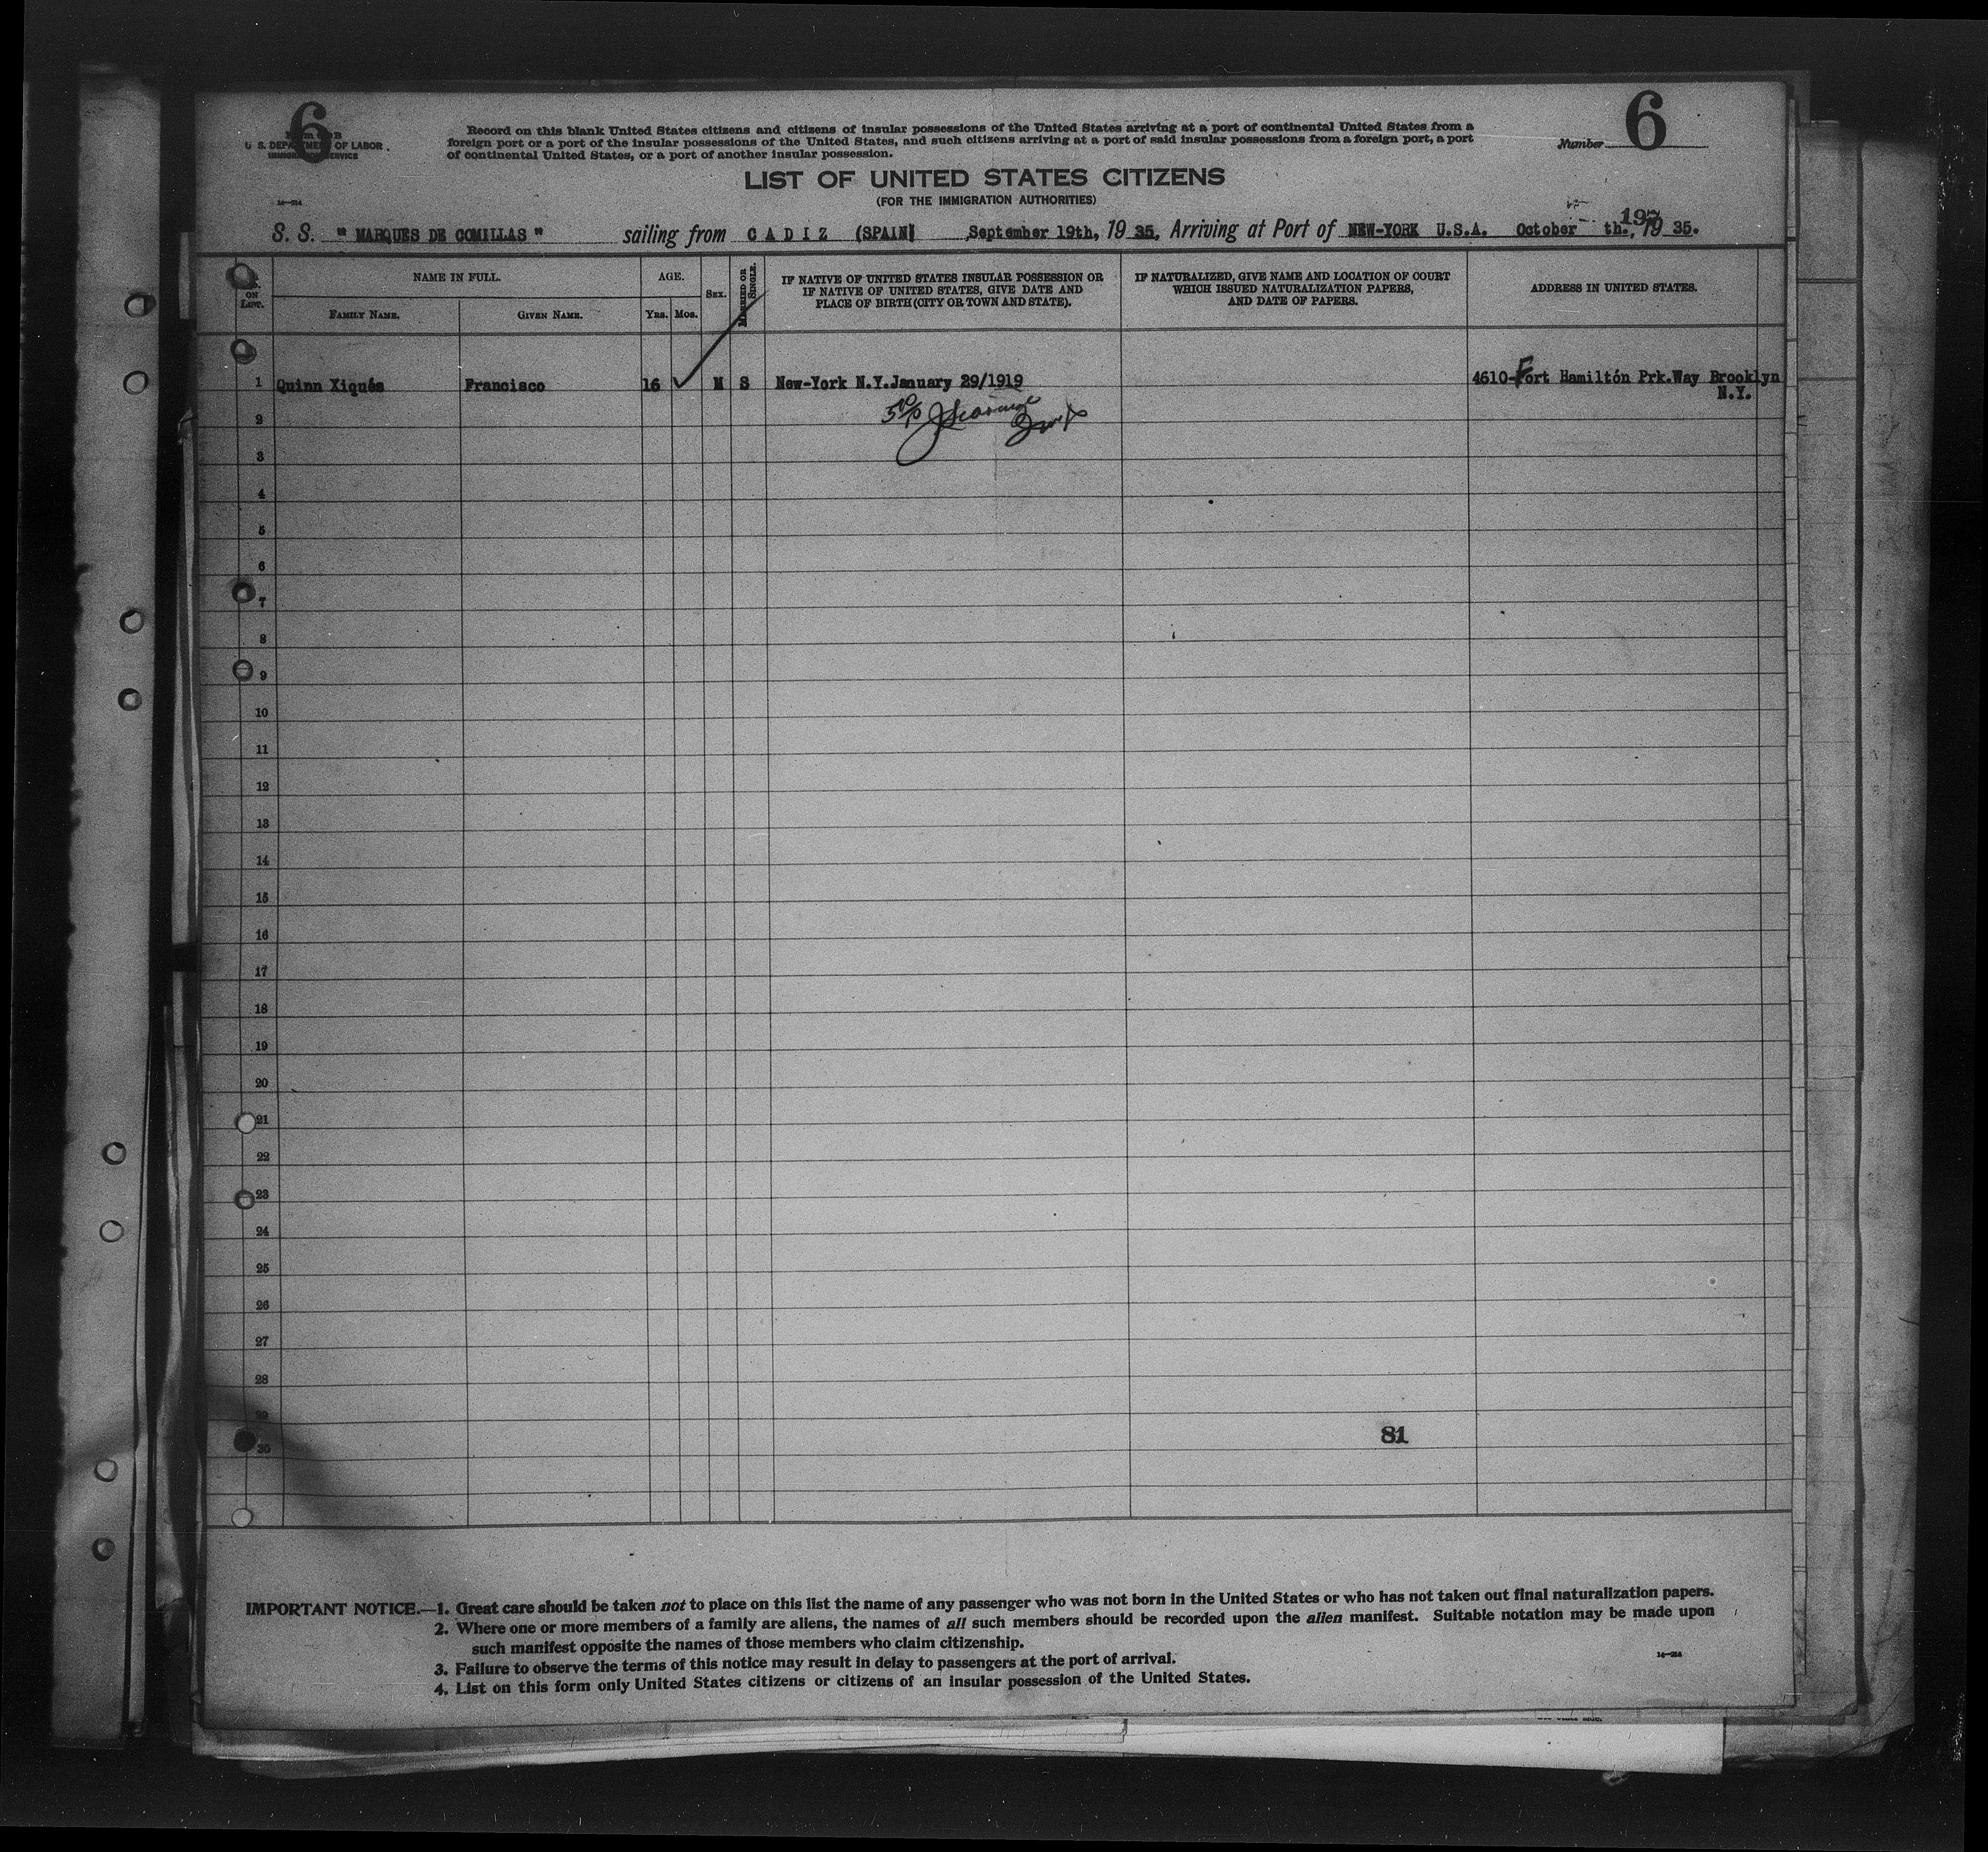 6
U. S. DEPARTMENT OF LABOR
IMMIGRATION SERVICE
14—214
Record on this blank United States citizens and citizens of insular possessions of the United States arriving at a port of continental United States from a
foreign port or a port of the insular possessions of the United States, and such citizens arriving at a port of said insular possessions from a foreign port, a port
of continental United States, or a port of another insular possession.
Number 6
LIST OF UNITED STATES CITIZENS
(FOR THE IMMIGRATION AUTHORITIES)
S. S. " MARQUES DE COMILLAS " sailing from C A D I Z (SPAIN) September 19th, 19 35, Arriving at Port of NEW-YORK U.S.A. October th., 19 35.
No. ON LIST. NAME IN FULL. AGE. SEX. MARRIED OR SINGLE. IF NATIVE OF UNITED STATES INSULAR POSSESSION OR IF NATIVE OF UNITED STATES, GIVE DATE AND PLACE OF BIRTH (CITY OR TOWN AND STATE). IF NATURALIZED, GIVE NAME AND LOCATION OF COURT WHICH ISSUED NATURALIZATION PAPERS, AND DATE OF PAPERS. ADDRESS IN UNITED STATES.
FAMILY NAME. GIVEN NAME. YRS. MOS.
1 Quinn Xiqués Francisco 16 M S New-York N.Y.January 29/1919 4610-Fort Hamiltón Prk.Way Brooklyn
N.Y.
2
3
4
5
6
7
8
9
10
11
12
13
14
15
16
17
18
19
20
21
22
23
24
25
26
27
28
29
81
30
IMPORTANT NOTICE.—1. Great care should be taken not to place on this list the name of any passenger who was not born in the United States or who has not taken out final naturalization papers.
2. Where one or more members of a family are aliens, the names of all such members should be recorded upon the alien manifest. Suitable notation may be made upon
such manifest opposite the names of those members who claim citizenship.
3. Failure to observe the terms of this notice may result in delay to passengers at the port of arrival.
4. List on this form only United States citizens or citizens of an insular possession of the United States.
14—214